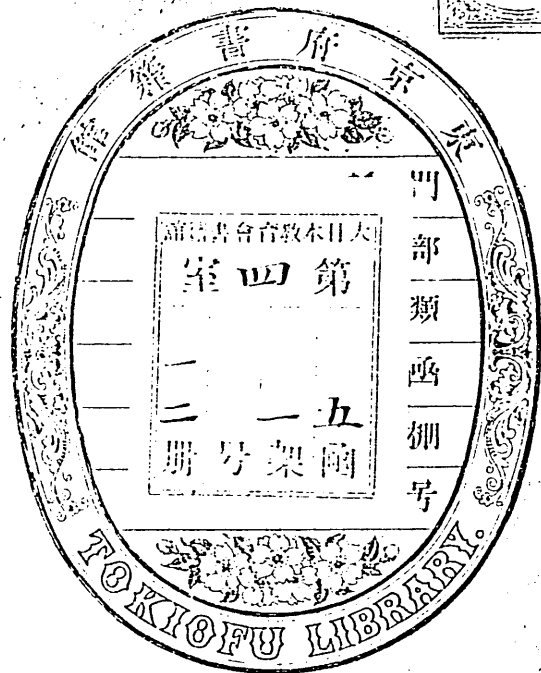 東京府書籍館
門
部
類
凾
棚
号
大日本教育會書籍館
第四室
五函
一架
号
一二册
TOKIOFU LIBRARY.